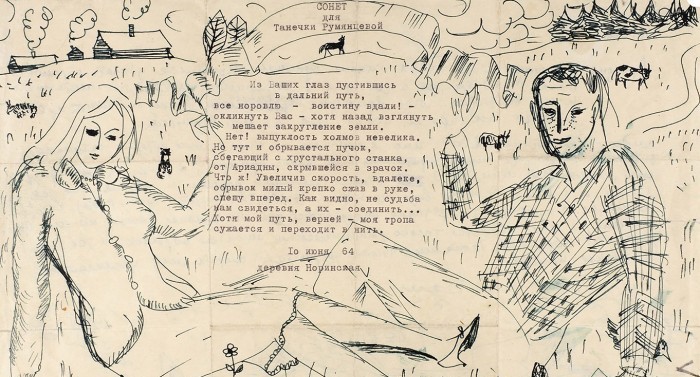 СОНЕТ
для
Танечки Румянцевой
Из Ваших глаз пустившись
в дальний путь,
все норовлю - воистину вдали! -
окликнуть Вас - хотя назад взглянуть
мешает закругление земли.
Нет! выпуклость холмов невелика.
Но тут и обрывается пучок,
сбегающий с хрустального станка,
от Ариадны, скрывшейся в зрачок.
Что ж! Увеличив скорость, вдалеке,
обрывок милый крепко сжав в руке,
спешу вперед. Как видно, не судьба
нам свидеться, а их - соединить...
Хотя мой путь, верней - моя тропа
сужается и переходит в нить.
10 июня 64
деревня Норинская